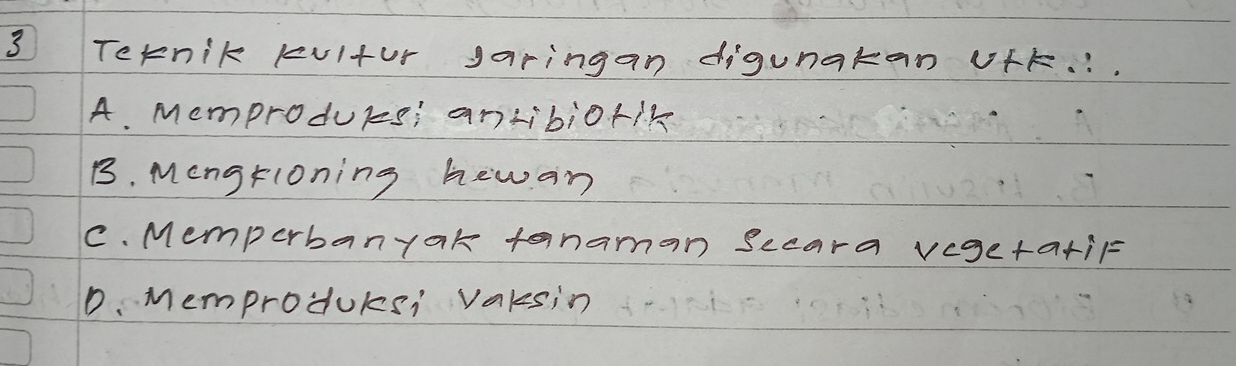 3 Teknik kultur Jaringan digunakan utk...
A. Memproduksi antibiotik
B. Mengkloning hewan
C. Memperbanyak tanaman secara vegetatif
D. Memproduksi vaksin